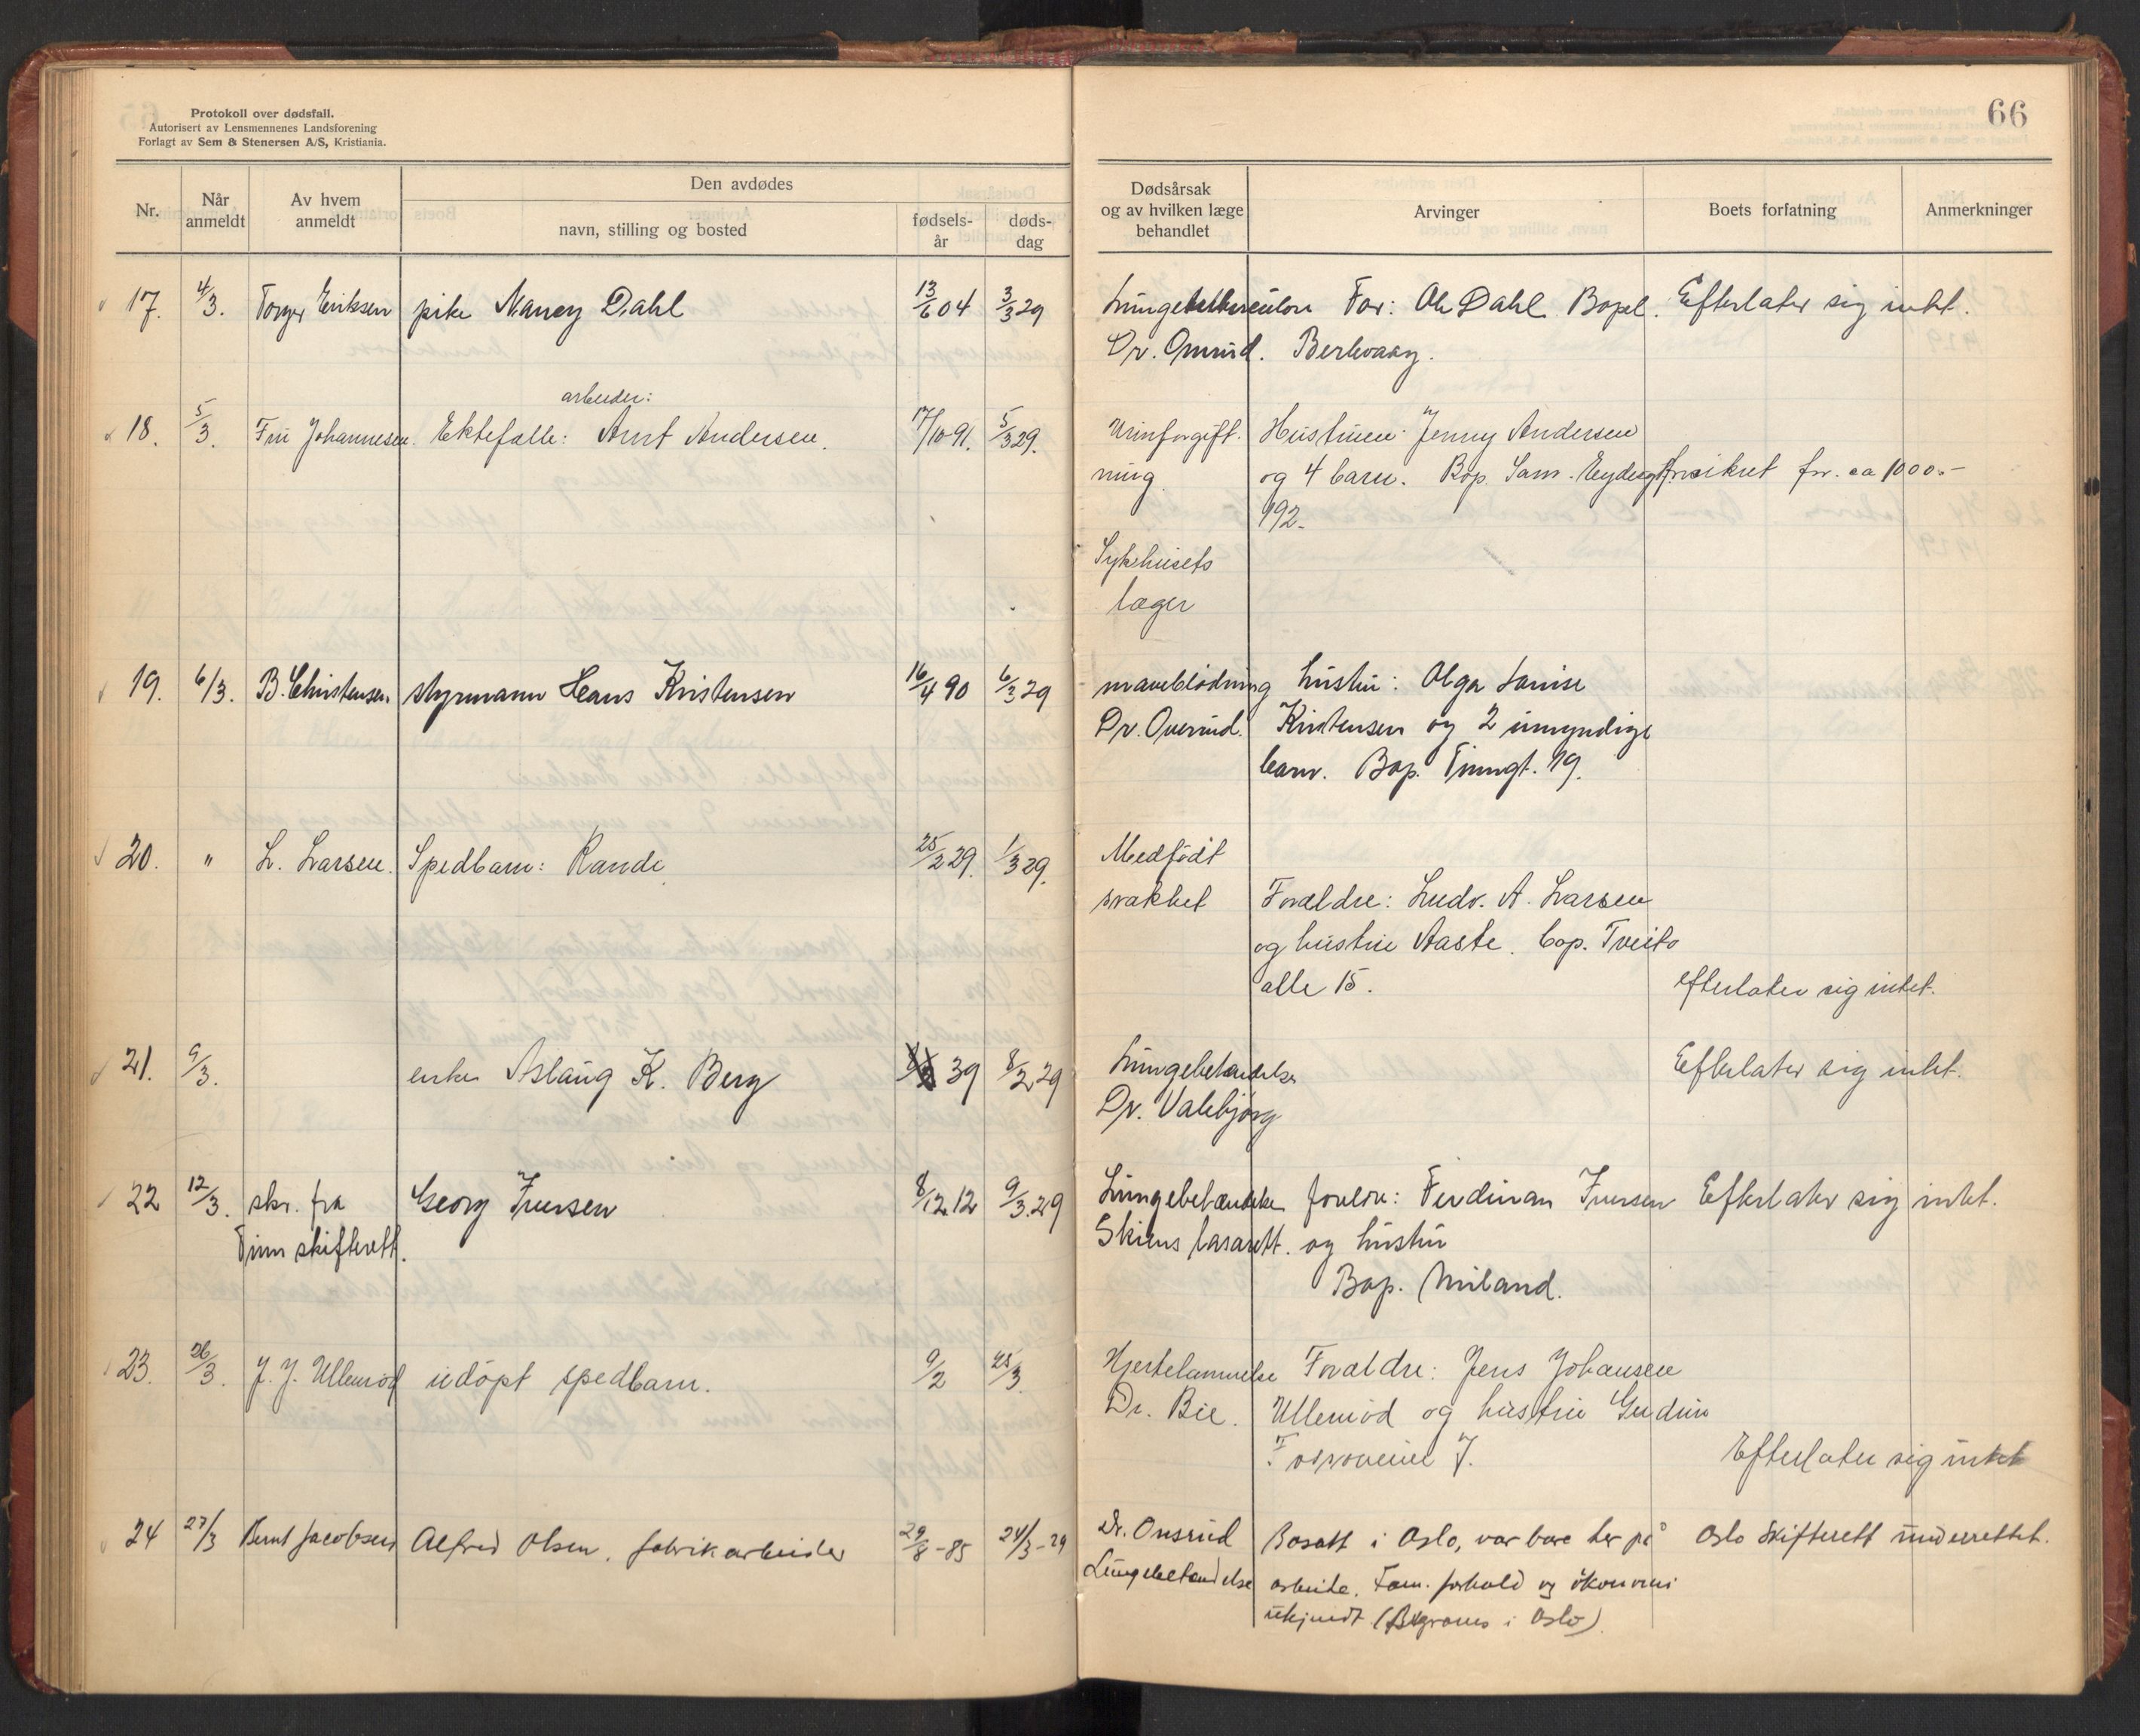 Protokoll over dødsfall.
Autorisert av Lensmennenes Landsforening
Forlagt av Sem & Stenersen A/S, Kristiania.
Nr.
Når anmeldt
Av hvem anmeldt
Den avdødes
navn, stilling og bosted
fødsels-år
døds-dag
17. 4/3. Torger Eriksen pike Nancy Dahl 13/6 04 3/3 29
arbeider:
18. 5/3. Fru Johannesen. Ektefelle: Arnt Andersen. 17/10 91. 5/3 29.
19. 6/3. B. Christensen. styrmann Hans Kristensen 16/4 90 6/3 29
20. " L. Larsen. Spedbarn: Randi 25/2 29. 1/3 29.
21. 9/3. enke Aslaug K. Berg 39 8/2 29
22 12/3. skr. fra Georg Iversen 8/12 12 9/3. 29
Tinn skifterett.
23. 26/3. J. J. Ullerud udöpt spedbarn. 9/2 25/3
24 27/3 Bernt Jacobsen Alfred Olsen, fabrikarbeider 29/8 - 85 24/3 - 29
66
Dødsårsak
og av hvilken læge
behandlet
Arvinger
Boets forfatning
Anmerkninger
Lungetuberculose Far: Ole Dahl Bopel. Efterlater sig intet.
Dr. Berkvaag.
Urinforgift- Hustruen Jenny Andersen
ning og 4 barn. Bop. Sam. Eydesgt. forsikret for ca 1000.-
192.
Sykehusets
læger
maveblödning hustru: Olga Louise
Dr. Kristensen og 2 umyndige
barn. Bop. Tinngt. 19.
Medfödt
svakhet Forældre: Ludv. A. Larsen
og hustru Aaste. bop. Tveito
alle 15. efterlater sig intet.
Lungebetændelse Efterlater sig intet.
Dr. Valebjörg
Lungebetændelse foreldre: Ferdinan Iversen Efterlater sig intet.
Skiens lasarett. og hustru
Bop. Miland.
Hjertelammelse Forældre: Jens Johansen
Dr. Bie. Ullerud og hustru Gudrun
Efterlater sig intet
Dr. Onsrud Bosatt i Oslo, var bare her på Oslo Skifterett underrettet.
Lungebetendelse arbeide. Fam. forhold og ökonomi
ukjendt (Begraves i Oslo)